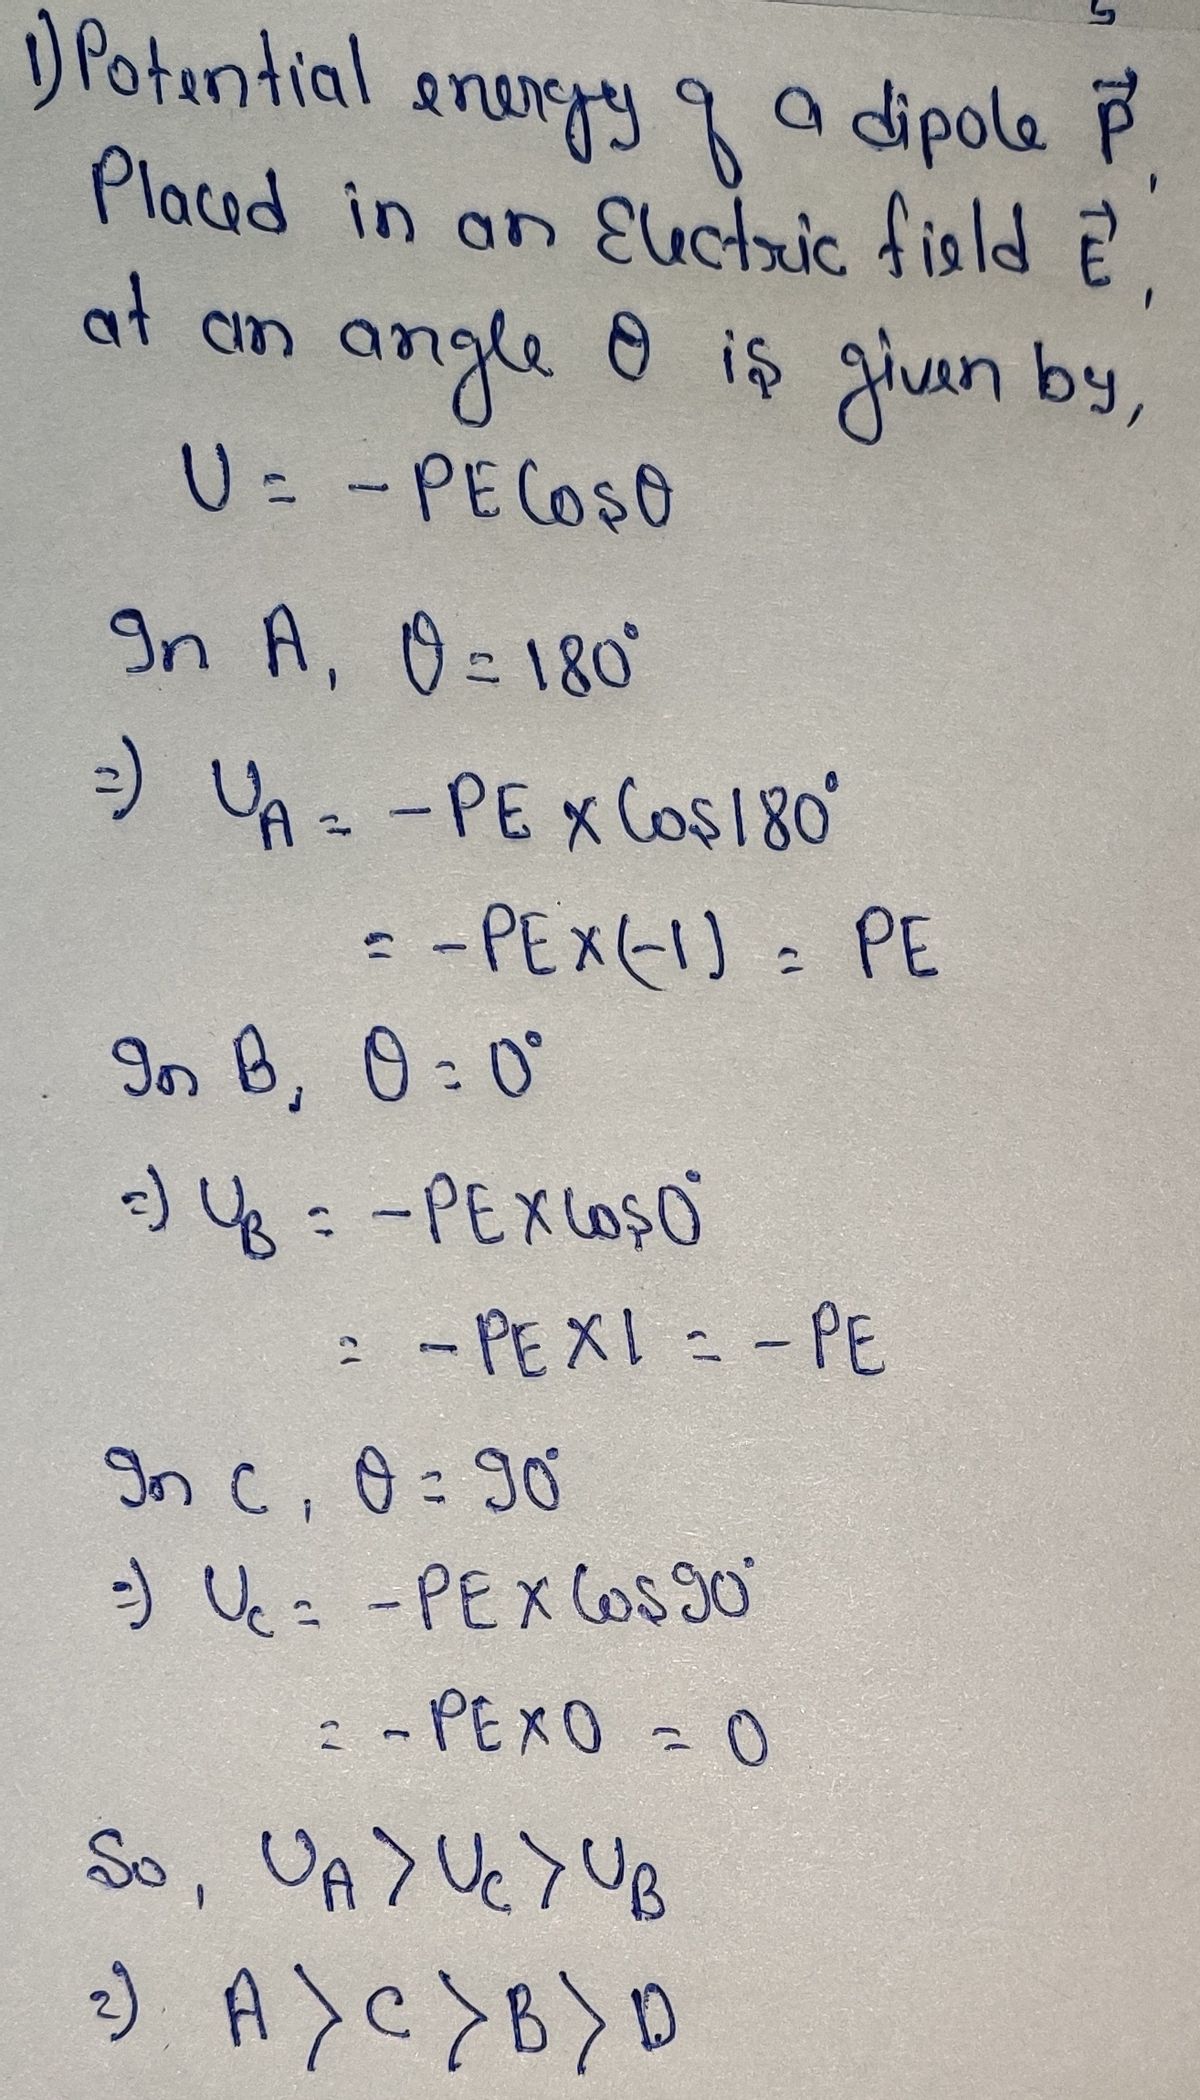 1) Potential energy of a dipole P⃗,
Placed in an Electric field E⃗,
at an angle θ is given by,
U = - PE Cosθ
In A, θ = 180°
=) U_A = - PE × Cos180°
= - PE × (-1) = PE
In B, θ = 0°
=) U_B = - PE × Cos0°
= - PE × 1 = - PE
In C, θ = 90°
=) U_C = - PE × Cos90°
= - PE × 0 = 0
So, U_A > U_C > U_B
=) A > C > B > D